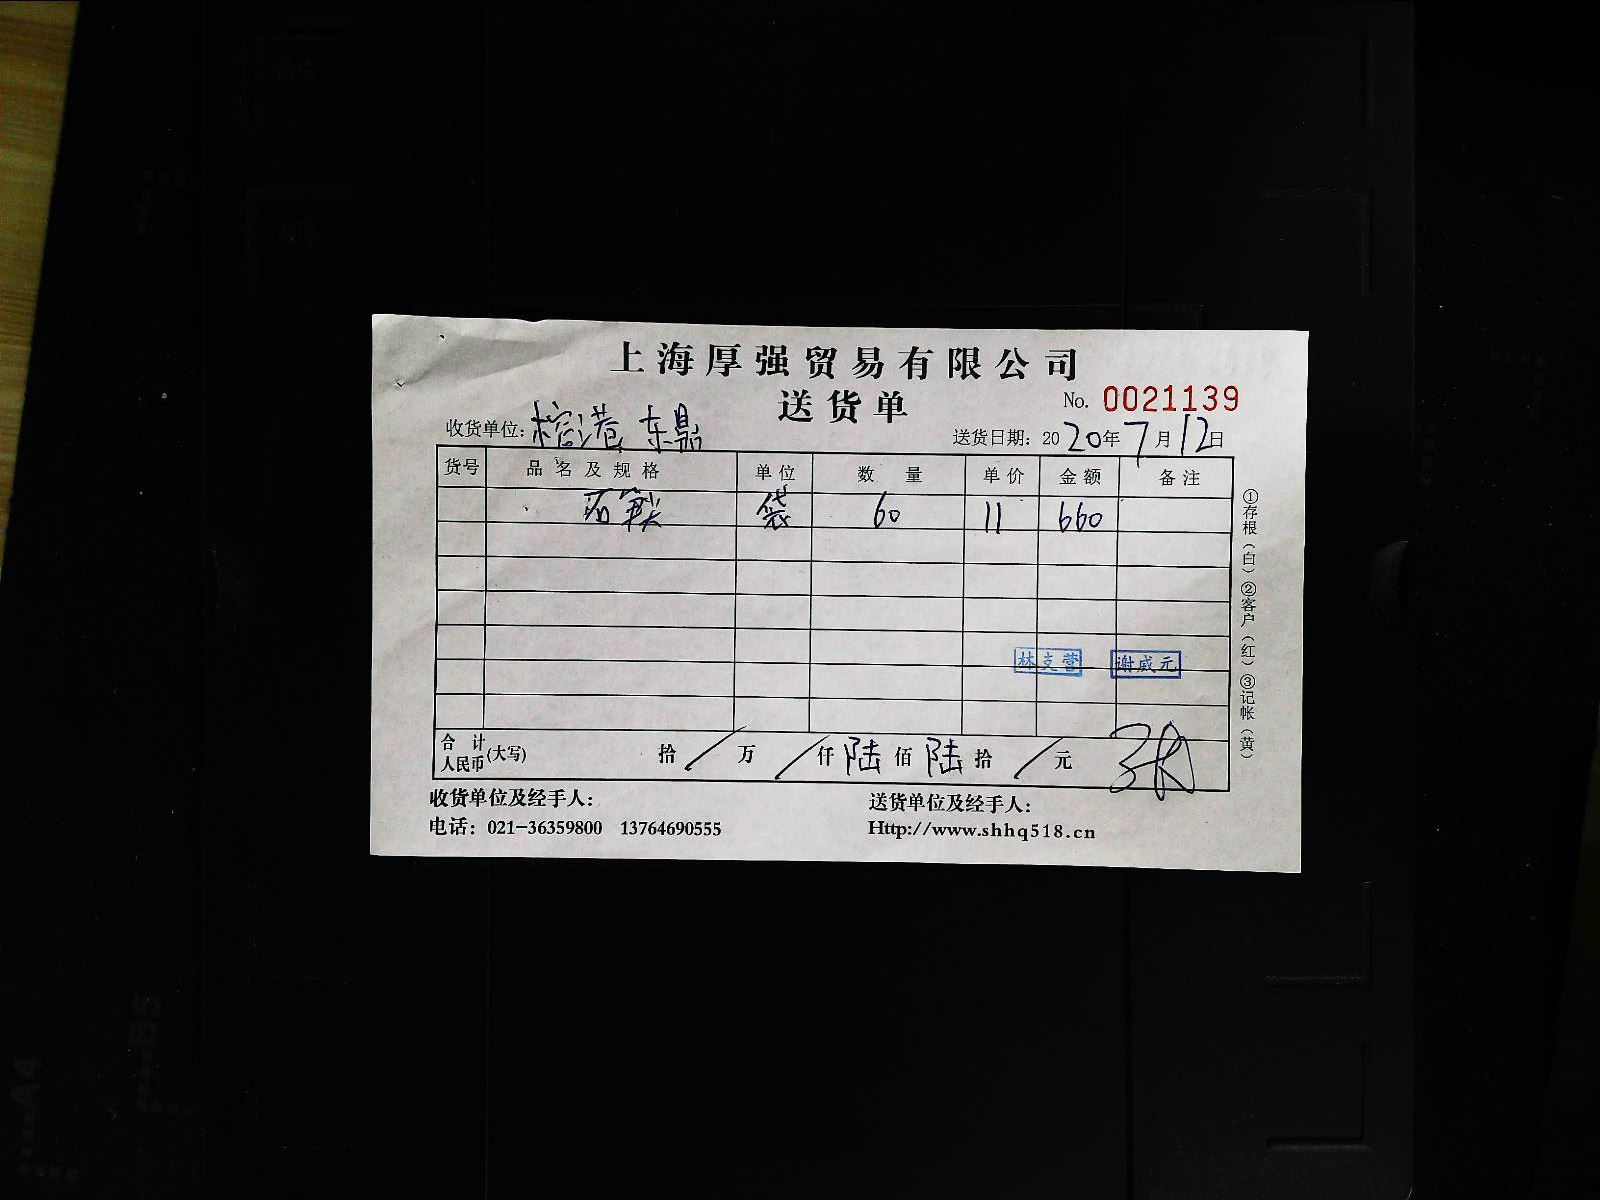 上海厚强贸易有限公司
送货单 No. 0021139
收货单位: 港 东鼎 送货日期: 2020年7月12日
货号 品名及规格 单位 数量 单价 金额 备注
石 袋 60 11 660
林支营 谢威元
合计人民币(大写) 拾/万/仟陆佰陆拾/元
收货单位及经手人: 送货单位及经手人:
电话: 021-36359800 13764690555 Http://www.shhq518.cn
①存根(白)②客户(红)③记帐(黄)